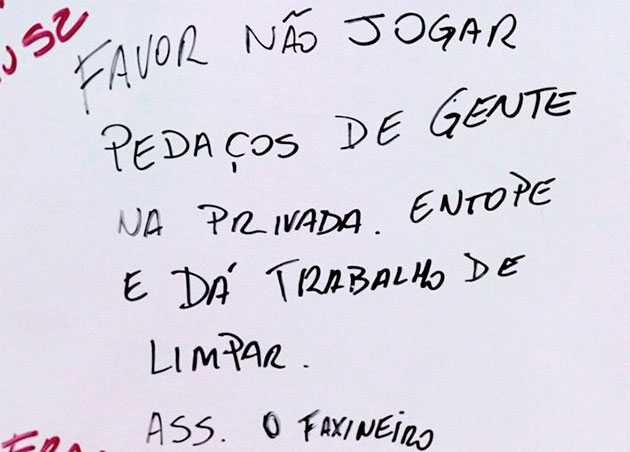 FAVOR NÃO JOGAR
PEDAÇOS DE GENTE
NA PRIVADA. ENTOPE
E DÁ TRABALHO DE
LIMPAR.
ASS. O FAXINEIRO